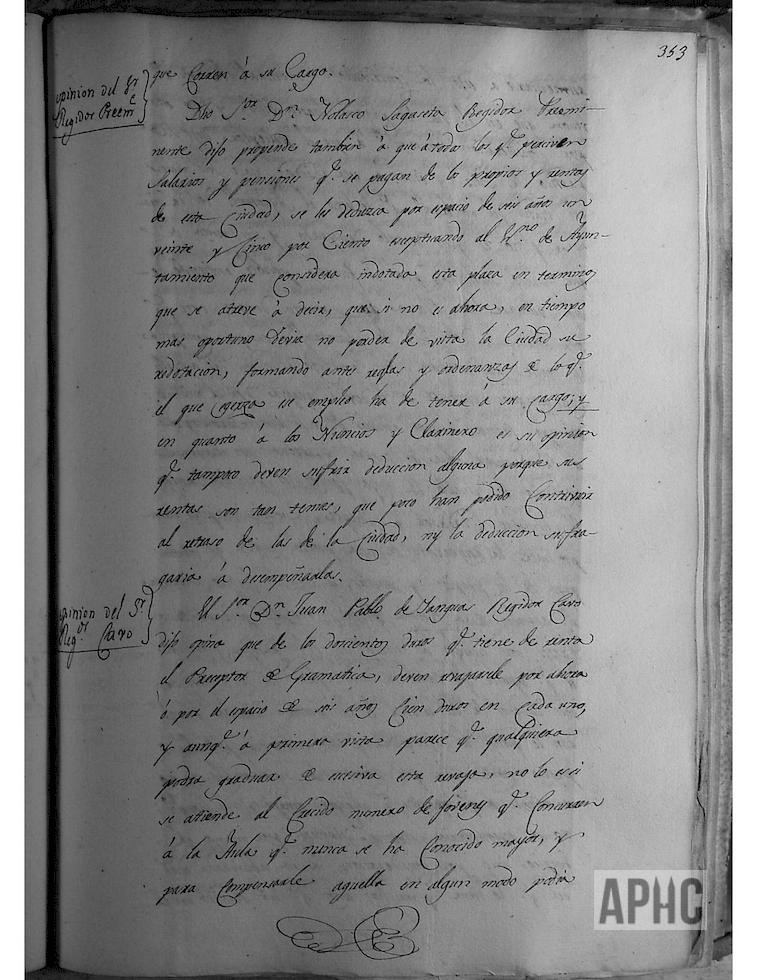 353
que Corren á su Cargo.
opinion del Sr.
Regidor Preeme.
Dho Sor. Dn. Nolasco Sagaseta Regidor Preemi-
nente dijo propende tambien á que á todos los q.e perciven
Salarios y pensiones q.e se pagan de lo propios y rentas
de esta Ciudad, se les deduzca por espacio de seis años un
veinte y Cinco por Ciento exceptuando al de Ayun-
tamiento que considera indotada esta plaza en terminos
que se atreve á decir, que si no es ahora, en tiempo
mas oportuno devia no perder de vista la Ciudad su
redotacion, formando antes reglas y ordenanzas de lo q.e
el que egerza ese empleo ha de tener á su Cargo; y
en quanto á los Nuncios y Clarinero es su opinion
q.e tampoco deven sufrir deduccion alguna porque sus
rentas son tan tenues, que poco han podido Contrivuir
al retraso de las de la Ciudad, ny la deduccion sufra-
garia á desempeñarlas.
opinion del Sr.
Regor. Caro
El Sor. Dn. Juan Pablo de Yanguas Regidor Caro
dijo opina que de los doscientos duros q.e tiene de renta
el Preceptor de Gramatica, deven revajarsele por ahora
ó por el espacio de seis años Cien duros en Cada uno,
y aunq.e á primera vista parece q.e qualquiera
podra graduar de excesiva esta revaja, no lo es si
se atiende al Crecido numero de Jovenes q.e Concurren
á la Aula q.e nunca se ha Conocido mayor, y
para Compensarle aquella en algun modo podia
APHC